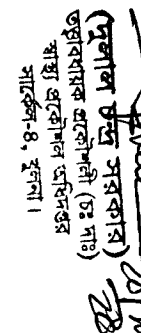 (দুলাল চন্দ্র সরকার)
তত্ত্বাবধায়ক প্রকৌশলী (চঃ দাঃ)
স্বাস্থ্য প্রকৌশল অধিদপ্তর
সার্কেল-৪, খুলনা।